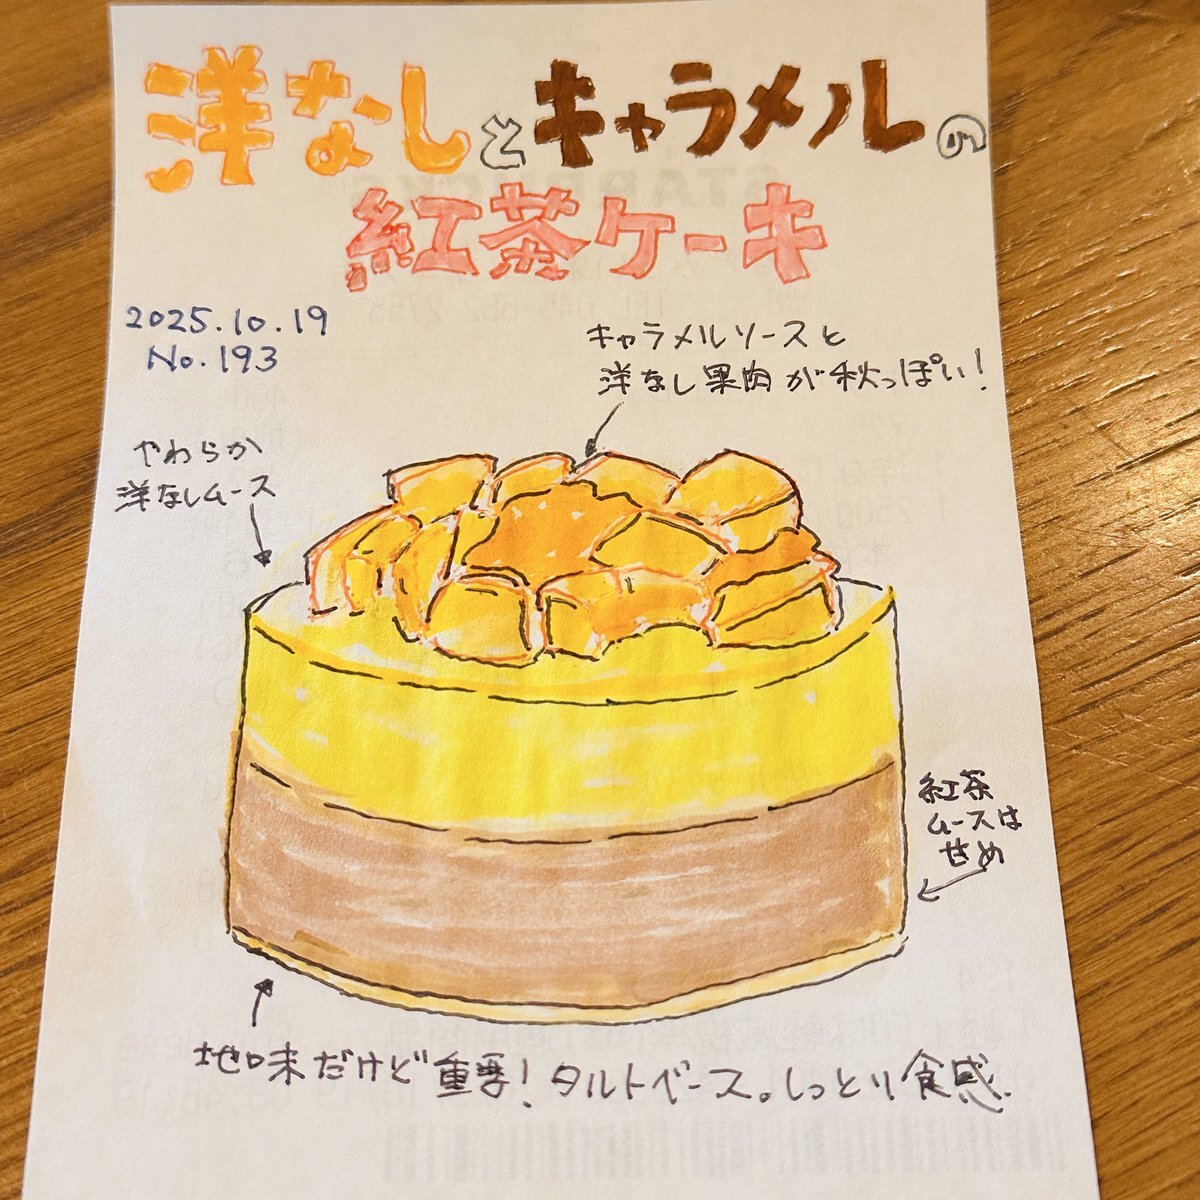 洋なしとキャラメルの
紅茶ケーキ
2025.10.19
No.193
キャラメルソースと
洋なし果肉が秋っぽい!
やわらか
洋なしムース
紅茶
ムースは
甘め
地味だけど重要!タルトベース。しっとり食感.